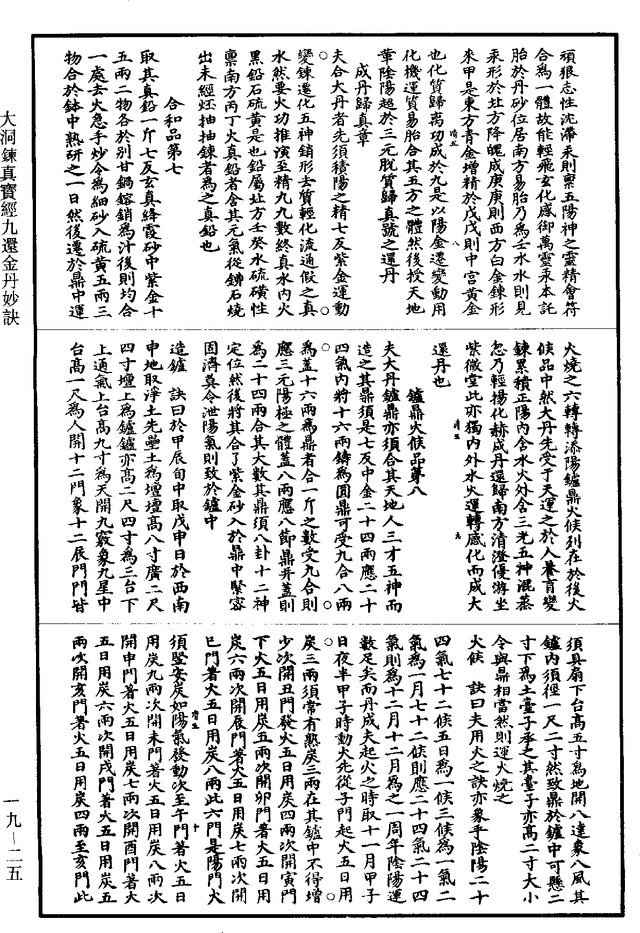 頑狠志性沈滯汞則稟五陽神之靈精會符
合為一體故能輕飛玄化感御萬靈汞本託
胎於丹砂位居南方易胎乃為壬水水則見
汞形於北方降魄成庚庚則西方白金鍊形
來甲是東方青金增精於戊戊則中宮黃金
也化質歸离功成於九是以陽金遷變動用
化機運質易胎合其五方之體然後授天地
華陰陽超於三元脫質歸真號之還丹
成丹歸真章
夫合大丹者先須積陽之精七反紫金運動
變鍊還化五神銷形去質輕化流通假之真
水然要火功推演至精九九數終真水內火
黑鉛石硫黃是也鉛屬北方壬癸水硫磺性
稟南方丙丁火真鉛者含其元氣從鉛石燒
出未經烴抽抽鍊者為之真鉛也
合和品第七
取其真鉛一斤七反玄真絳霞砂中紫金十
五兩二物各於別甘鍋鎔銷為汁後則均合
一處去火急手炒令為細砂入硫黃五兩三
物合於鉢中熟研之一日然後遷於鼎中運
火燒之六轉轉添陽鑪鼎火候列在於後火
候品中然大丹先受于天運之於人養育變
鍊累積正陽內含水火外含三光五神混蒸
忽乃輕揚化赫成丹還歸南方清澄優游坐
紫微堂此亦獨內外水火運轉感化而成大
還丹也
鑪鼎火候品第八
夫大丹鑪鼎亦須合其天地人三才五神而
造之其鼎須是七反中金二十四兩應二十
四氣內將十六兩鑄為圓鼎可受九合八兩
為蓋十六兩為鼎者合一斤之數受九合則
應三元陽極之體蓋八兩應八節鼎并蓋則
為二十四兩合其大數其鼎須八卦十二神
定位然後將其合了紫金砂入於鼎中緊密
固濟莫令泄陽氣則致於鑪中
造鑪　訣曰於甲辰旬中取戊申日於西南
申地取淨土先壘土為壇壇高八寸廣二尺
四寸壇上為鑪鑪亦高二尺四寸為三台下
上通氣上台高九寸為天開九竅象九星中
台高一尺為人開十二門象十二辰門門皆
須具扇下台高五寸為地開八達象八風其
鑪內須徑一尺二寸然致鼎於鑪中可懸二
寸下為土臺子承之其臺子亦高二寸大小
令與鼎相當然則運火燒之
火候　訣曰夫用火之訣亦象乎陰陽二十
四氣七十二候五日為一候三候為一氣二
氣為一月七十二候則應二十四氣二十四
氣則為十二月十二月為之一周年陰陽運
數足矣而丹成夫起火之時取十一月甲子
日夜半甲子時動火先從子門起火五日用
炭三兩須常有熟炭三兩在其鑪中不得增
少次開丑門發火五日用炭四兩次開寅門
下火五日用炭五兩次開卯門著火五日用
炭六兩次開辰門著火五日用炭七兩次開
巳門著火五日用炭八兩此六門是陽門火
須堅安炭如陽氣發動次至午門著火五日
用炭九兩次開未門著火五日用炭八兩次
開申門著火五日用炭七兩次開酉門著火
五日用炭六兩次開戌門著火五日用炭五
兩次開亥門著火五日用炭四兩至亥門此
大洞鍊真寶經九還金丹妙訣
一九–二五